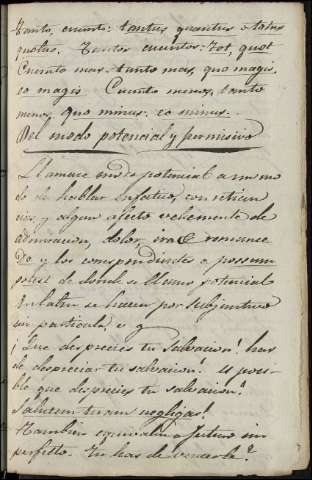 tanto, cuanto: tantus quantus o totus
quotus. Tantos cuantos: tot, quot
Cuanto mas - tanto mas, quo magis,
eo magis. Cuanto menos, tanto
menos, quo minus: eo minus.
Del modo potencial y permisivo
Llamase modo potencial a un mo
do de hablar enfatico, con reticen
cias y algun afecto vehemente de
admiracion, dolor, ira &
y los correspondientes a possum
potes de donde se llama potencial
En latin se hacen por subjuntivo
sin particula, v g
¡Que desprecies tu salvacion! has
de despreciar tu salvacion! es posi-
ble que desprecies tu salvacion!
Salutem tuam negligas!
Tambien equivale a futuro im
perfecto. Tu has de